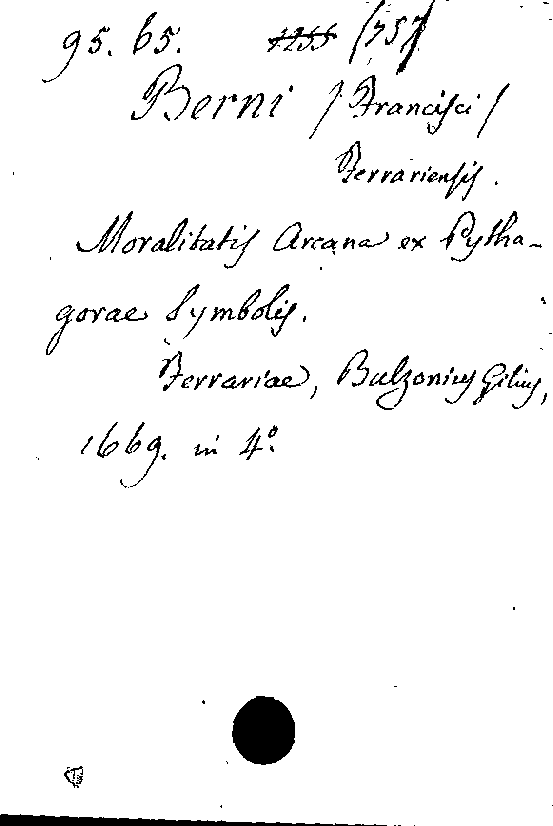 95. 65. (757)
Berni /Francisci/
Ferrariensis.
Moralitatis Arcana ex Pytha-
gorae Symbolis.
Ferrariae, Bulzonius Gilius,
1669. in 4º.